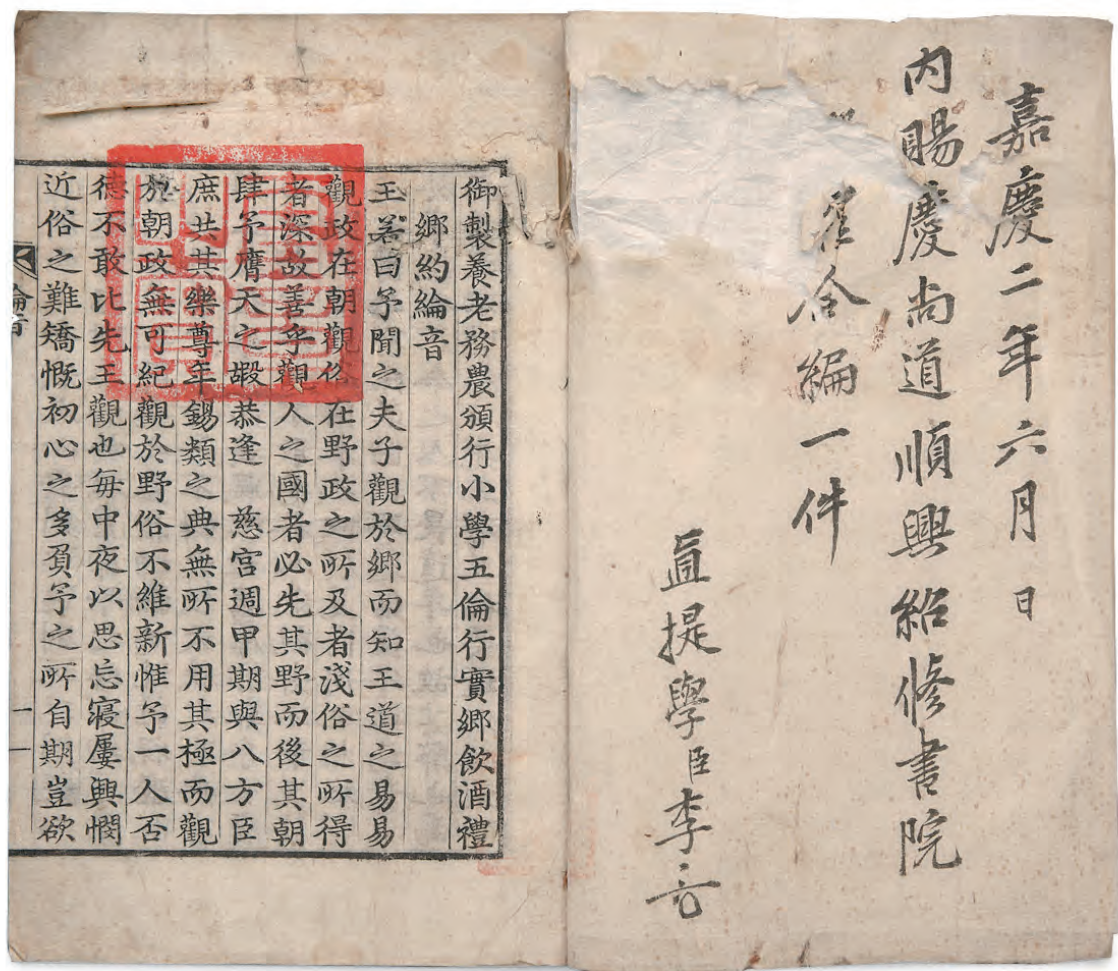 嘉慶二年六月 日
內賜慶尚道順興紹修書院
合編一件
直提學臣李
御製養老務農頒行小學五倫行實鄉飲酒禮
鄉約綸音
王若曰予聞之夫子觀於鄉而知王道之易易
觀政在朝觀俗在野政之所及者淺俗之所得
者深故善乎觀人之國者必先其野而後其朝
肆予膺天之嘏恭逢 慈宮週甲期與八方臣
庶共其樂尊年錫類之典無所不用其極而觀
於朝政無可紀觀於野俗不維新惟予一人否
德不敢比先王觀也每中夜以思忘寢屢興憫
近俗之難矯慨初心之多負予之所自期豈欲
綸音 一